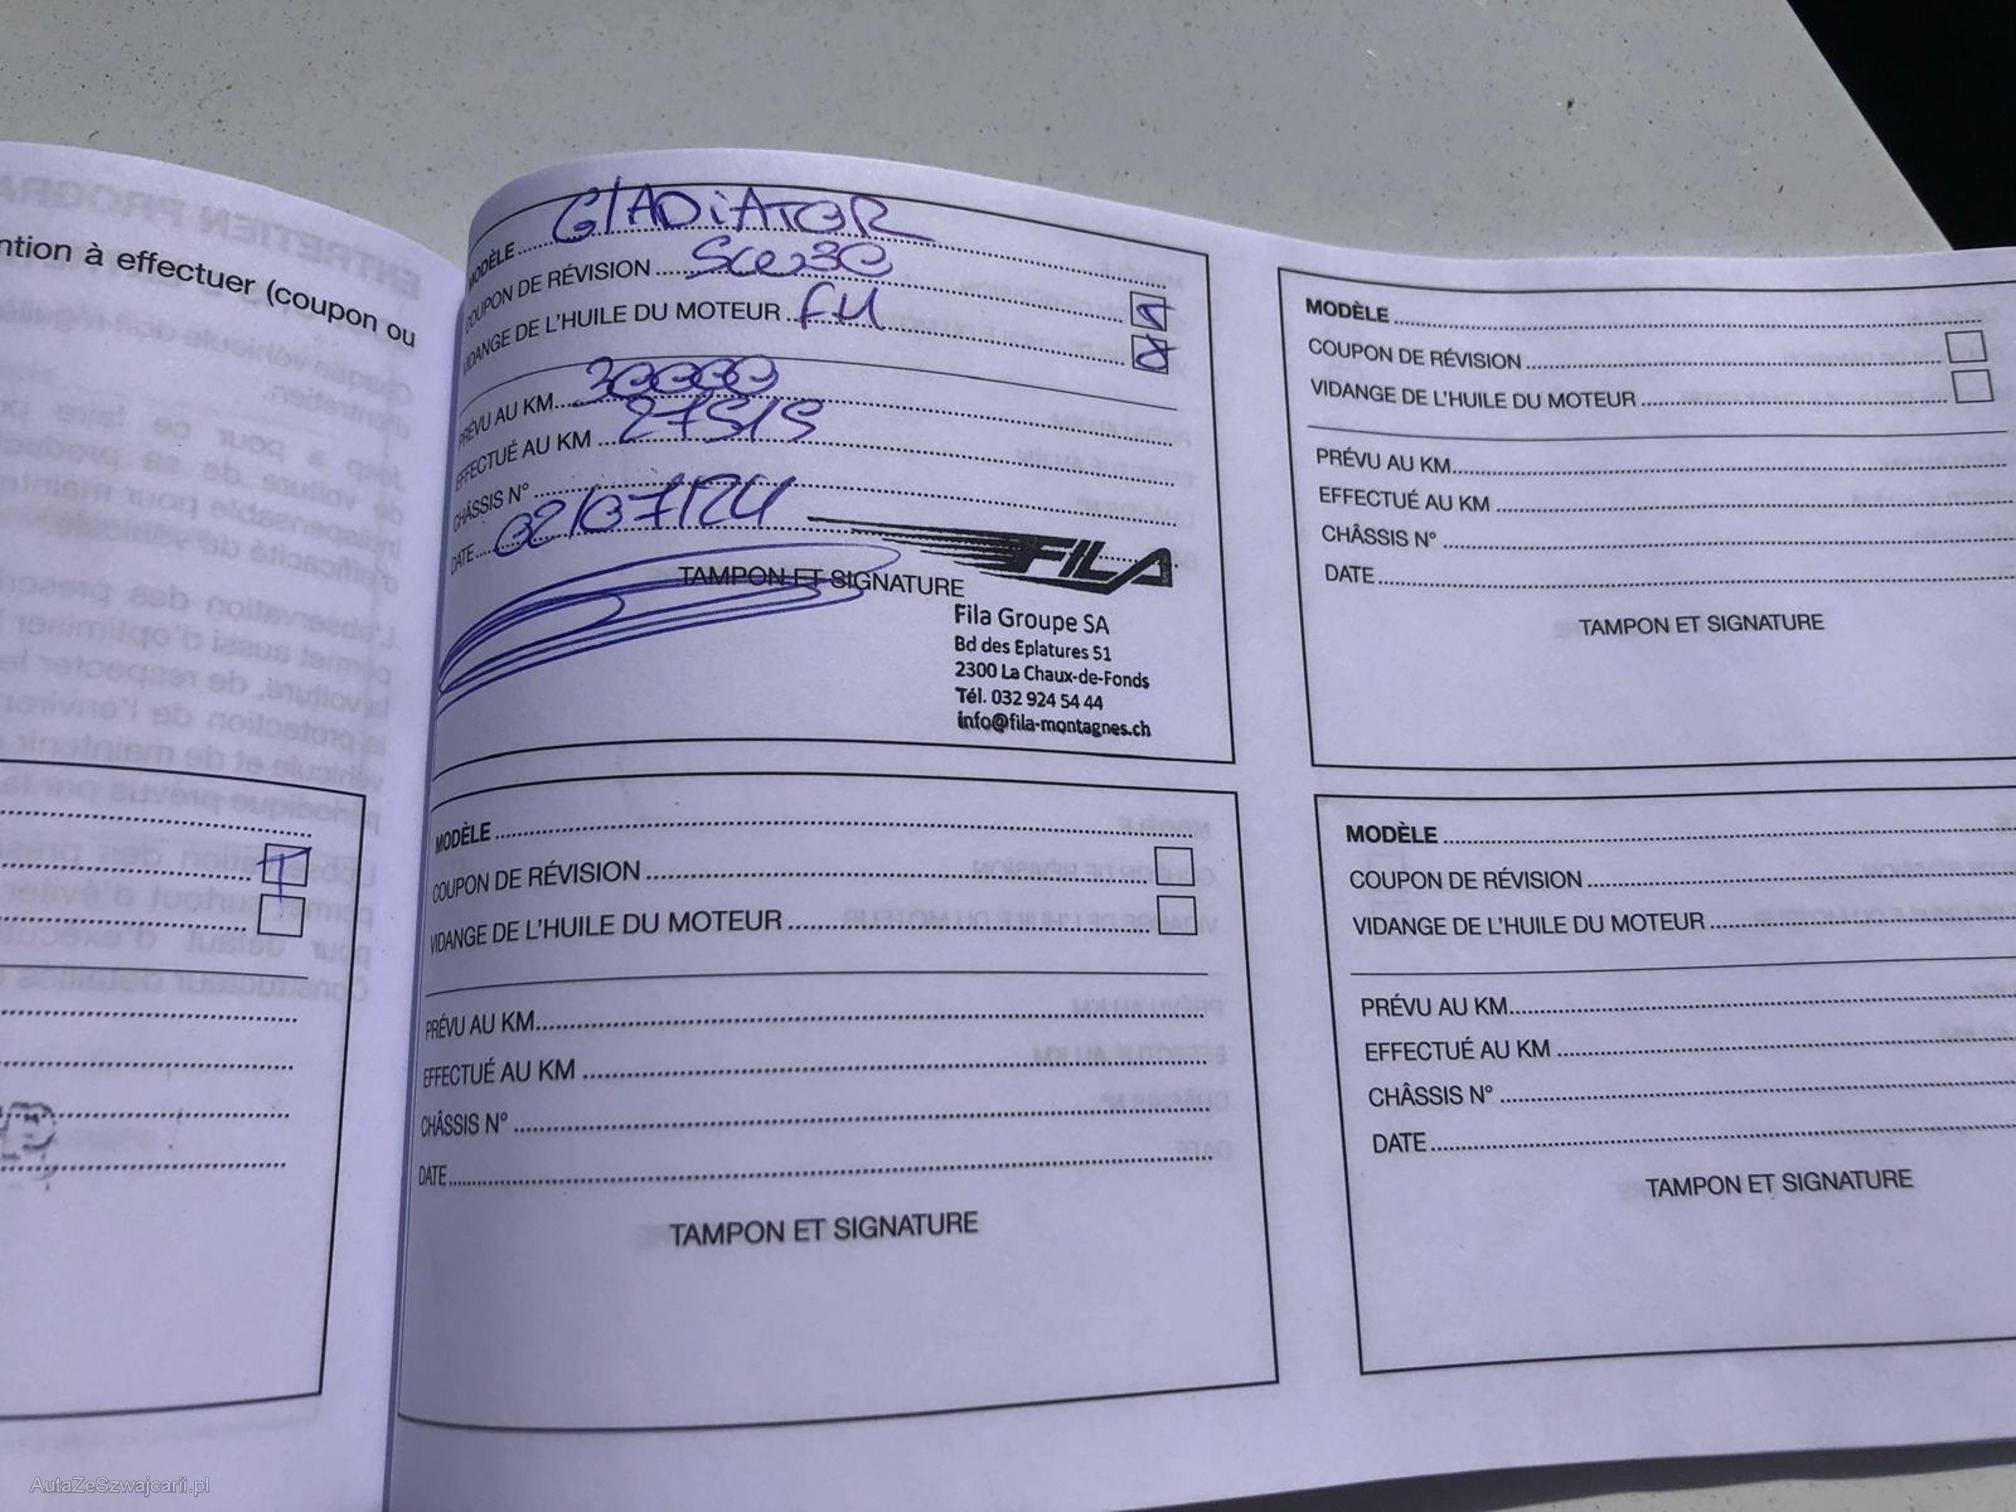 ntion à effectuer (coupon ou
MODÈLE GlADiATOR
COUPON DE RÉVISION
VIDANGE DE L'HUILE DU MOTEUR
PRÉVU AU KM 30000
EFFECTUÉ AU KM 27515
CHÂSSIS N°
DATE 02/07/24
TAMPON ET SIGNATURE
FILA
Fila Groupe SA
Bd des Eplatures 51
2300 La Chaux-de-Fonds
Tél. 032 924 54 44
info@fila-montagnes.ch
MODÈLE
COUPON DE RÉVISION
VIDANGE DE L'HUILE DU MOTEUR
PRÉVU AU KM
EFFECTUÉ AU KM
CHÂSSIS N°
DATE
TAMPON ET SIGNATURE
MODÈLE
COUPON DE RÉVISION
VIDANGE DE L'HUILE DU MOTEUR
PRÉVU AU KM
EFFECTUÉ AU KM
CHÂSSIS N°
DATE
TAMPON ET SIGNATURE
MODÈLE
COUPON DE RÉVISION
VIDANGE DE L'HUILE DU MOTEUR
PRÉVU AU KM
EFFECTUÉ AU KM
CHÂSSIS N°
DATE
TAMPON ET SIGNATURE
AutaZeSzwajcarii.pl